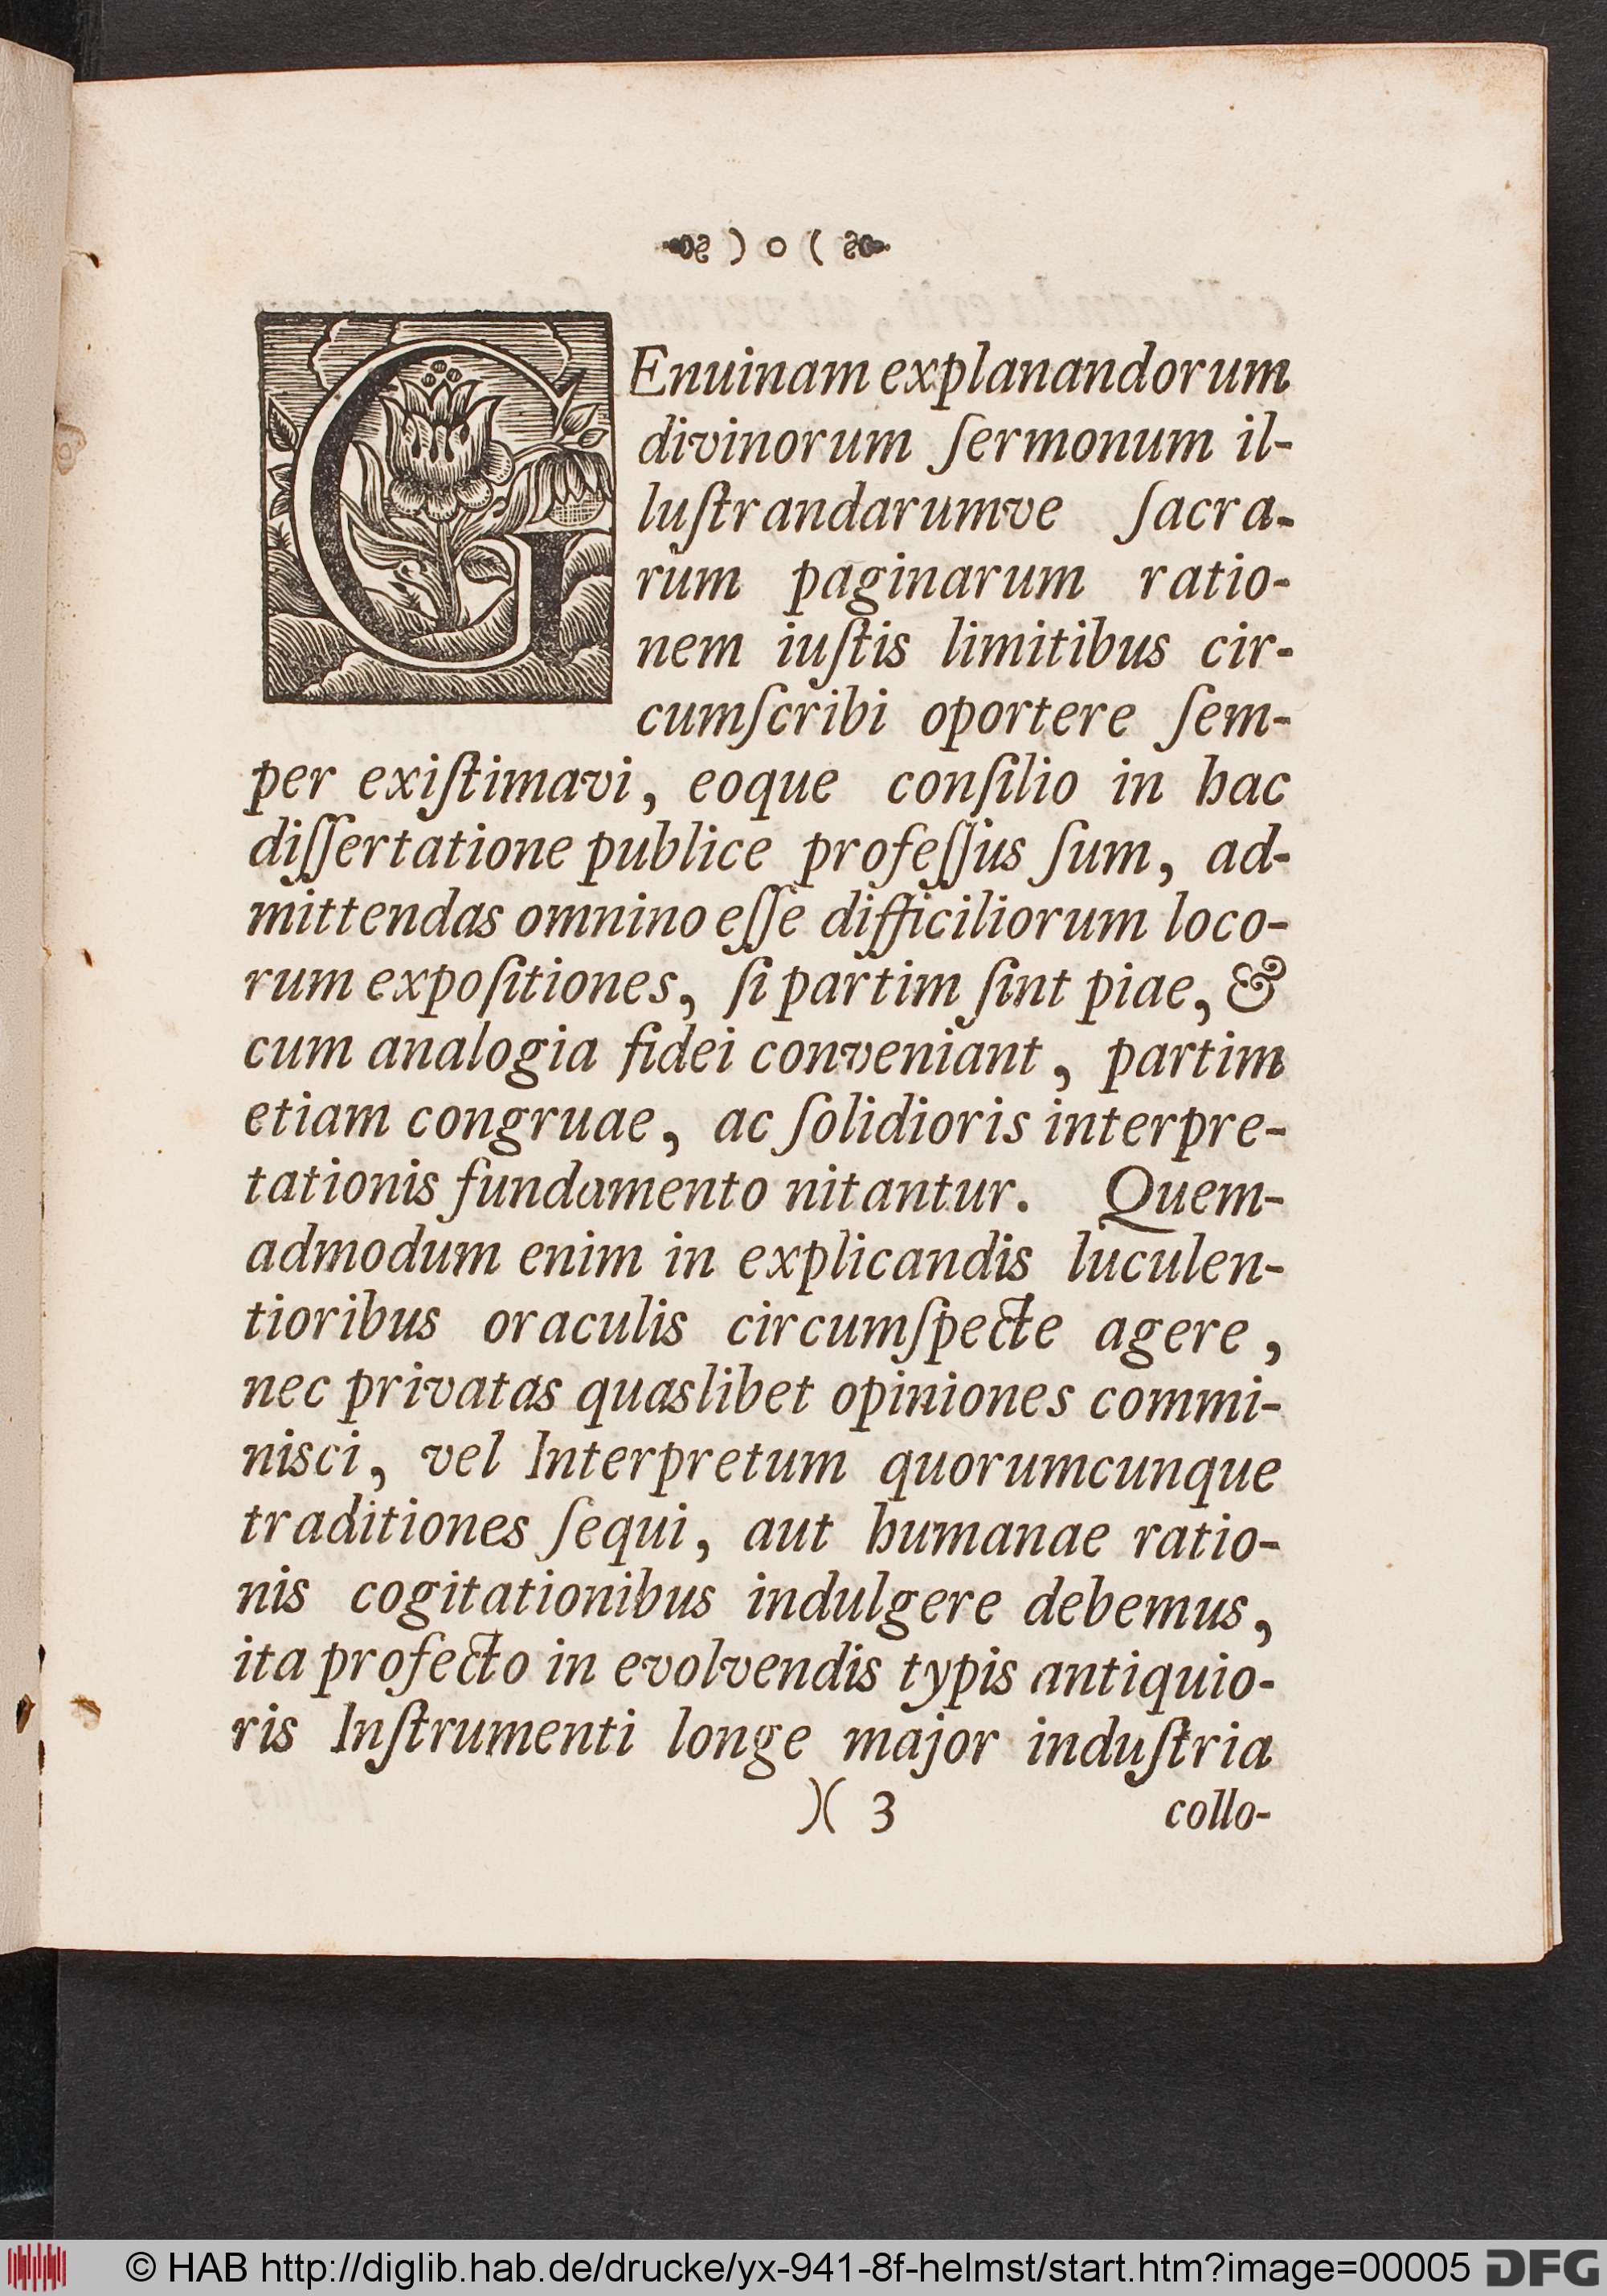 ) o (
GEnuinam explanandorum
divinorum ſermonum il-
luſtrandarumve ſacra-
rum paginarum ratio-
nem iuſtis limitibus cir-
cumſcribi oportere ſem-
per exiſtimavi, eoque conſilio in hac
diſſertatione publice profeſſus ſum, ad-
mittendas omnino eſſe difficiliorum loco-
rum expoſitiones, ſi partim ſint piae, &
cum analogia fidei conveniant, partim
etiam congruae, ac ſolidioris interpre-
tationis fundamento nitantur. Quem-
admodum enim in explicandis luculen-
tioribus oraculis circumſpecte agere,
nec privatas quaslibet opiniones commi-
nisci, vel Interpretum quorumcunque
traditiones ſequi, aut humanae ratio-
nis cogitationibus indulgere debemus,
ita profecto in evolvendis typis antiquio-
ris Inſtrumenti longe major induſtria
)( 3 collo-
© HAB http://diglib.hab.de/drucke/yx-941-8f-helmst/start.htm?image=00005 DFG